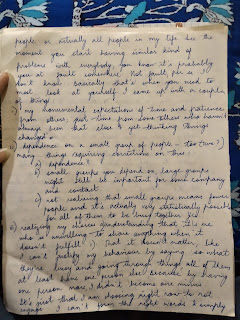 people, or actually all people in my life. See the
moment you start having similar kind of
problems with everybody you know it's probably
you at fault somewhere. Not fault per se I
don't know. basically that's when you need to
most look at yourself. I came up with a couple
of things
1) my monumental expectations of time and patience
from others, just time from some others who haven't
always been that close & yet thinking things
changed
2) dependence on a small group of people - too two?)
many things requiring corrections on this:
a) dependence!
b) small groups you depend on, large groups
might still be important for some company
and contact
c) not realising that small groups means fewer
people and it's actually very statistically possible
for all of them to be busy together yes
3) realising my shares understanding that it's me
who is unwilling to share anything when it
doesn't fulfill 1). That it doesn't matter, like
I can't justify my behaviour by saying so what
they're busy and going through things all of them
at least have one person else because by having
one person more, I didn't become one minus
one person.
It's great that I am dressing right now to not
image. I can't form the right words. I simply